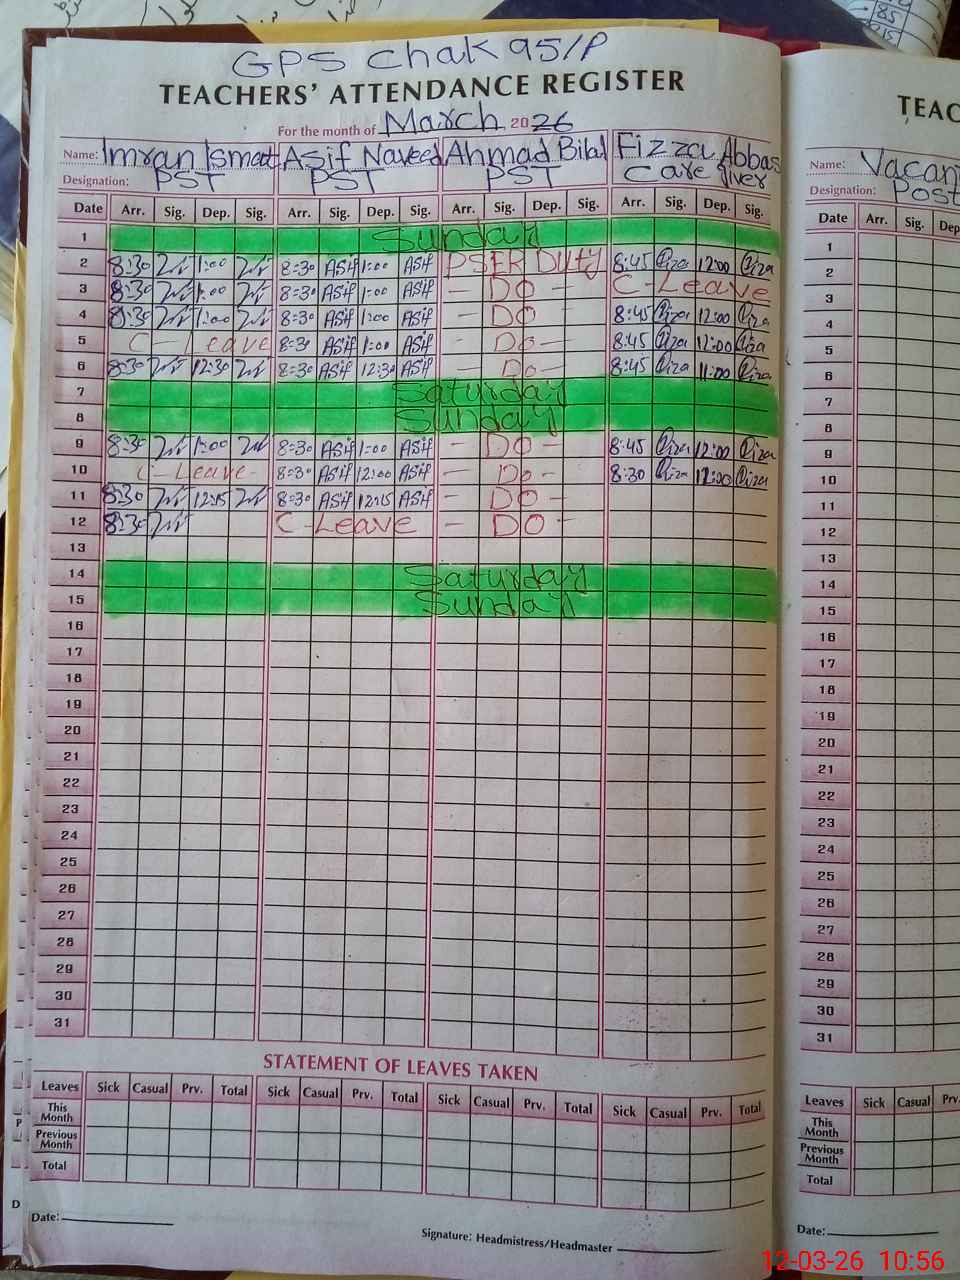 GPS Chak 95/P
TEACHERS' ATTENDANCE REGISTER
For the month of March 2026
Name: Imran Ismat Asif Naveed Ahmad Bilal Fizza Abbas
Designation: PST PST PST Care giver
Date Arr. Sig. Dep. Sig. Arr. Sig. Dep. Sig. Arr. Sig. Dep. Sig. Arr. Sig. Dep. Sig.
1 Sunday
2 8:30 1:00 8:30 Asif 1:00 Asif PSER Duty 8:45 12:00
3 8:30 1:00 8:30 Asif 1:00 Asif - Do - C-Leave
4 8:30 1:00 8:30 Asif 1:00 Asif - Do - 8:45 12:00
5 C-Leave 8:30 Asif 1:00 Asif - Do - 8:45 12:00
6 8:30 12:30 8:30 Asif 12:30 Asif - Do - 8:45 11:00
7 Saturday
8 Sunday
9 8:30 1:00 8:30 Asif 1:00 Asif - Do - 8:45 12:00
10 C-Leave- 8:30 Asif 12:00 Asif - Do - 8:30 12:00
11 8:30 12:15 8:30 Asif 12:15 Asif - Do -
12 8:30 C-Leave - DO -
13
14 Saturday
15 Sunday
16
17
18
19
20
21
22
23
24
25
26
27
28
29
30
31
STATEMENT OF LEAVES TAKEN
Leaves Sick Casual Prv. Total Sick Casual Prv. Total Sick Casual Prv. Total Sick Casual Prv. Total
This Month
Previous Month
Total
Date:
Signature: Headmistress/Headmaster
TEAC
Name: Vacan
Designation: Post
Date Arr. Sig. Dep
1
2
3
4
5
6
7
8
9
10
11
12
13
14
15
16
17
18
19
20
21
22
23
24
25
26
27
28
29
30
31
Leaves Sick Casual Prv.
This Month
Previous Month
Total
Date:
12-03-26 10:56